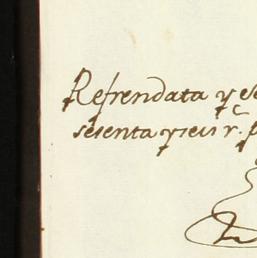 Refrendata y
sesenta y seis r.